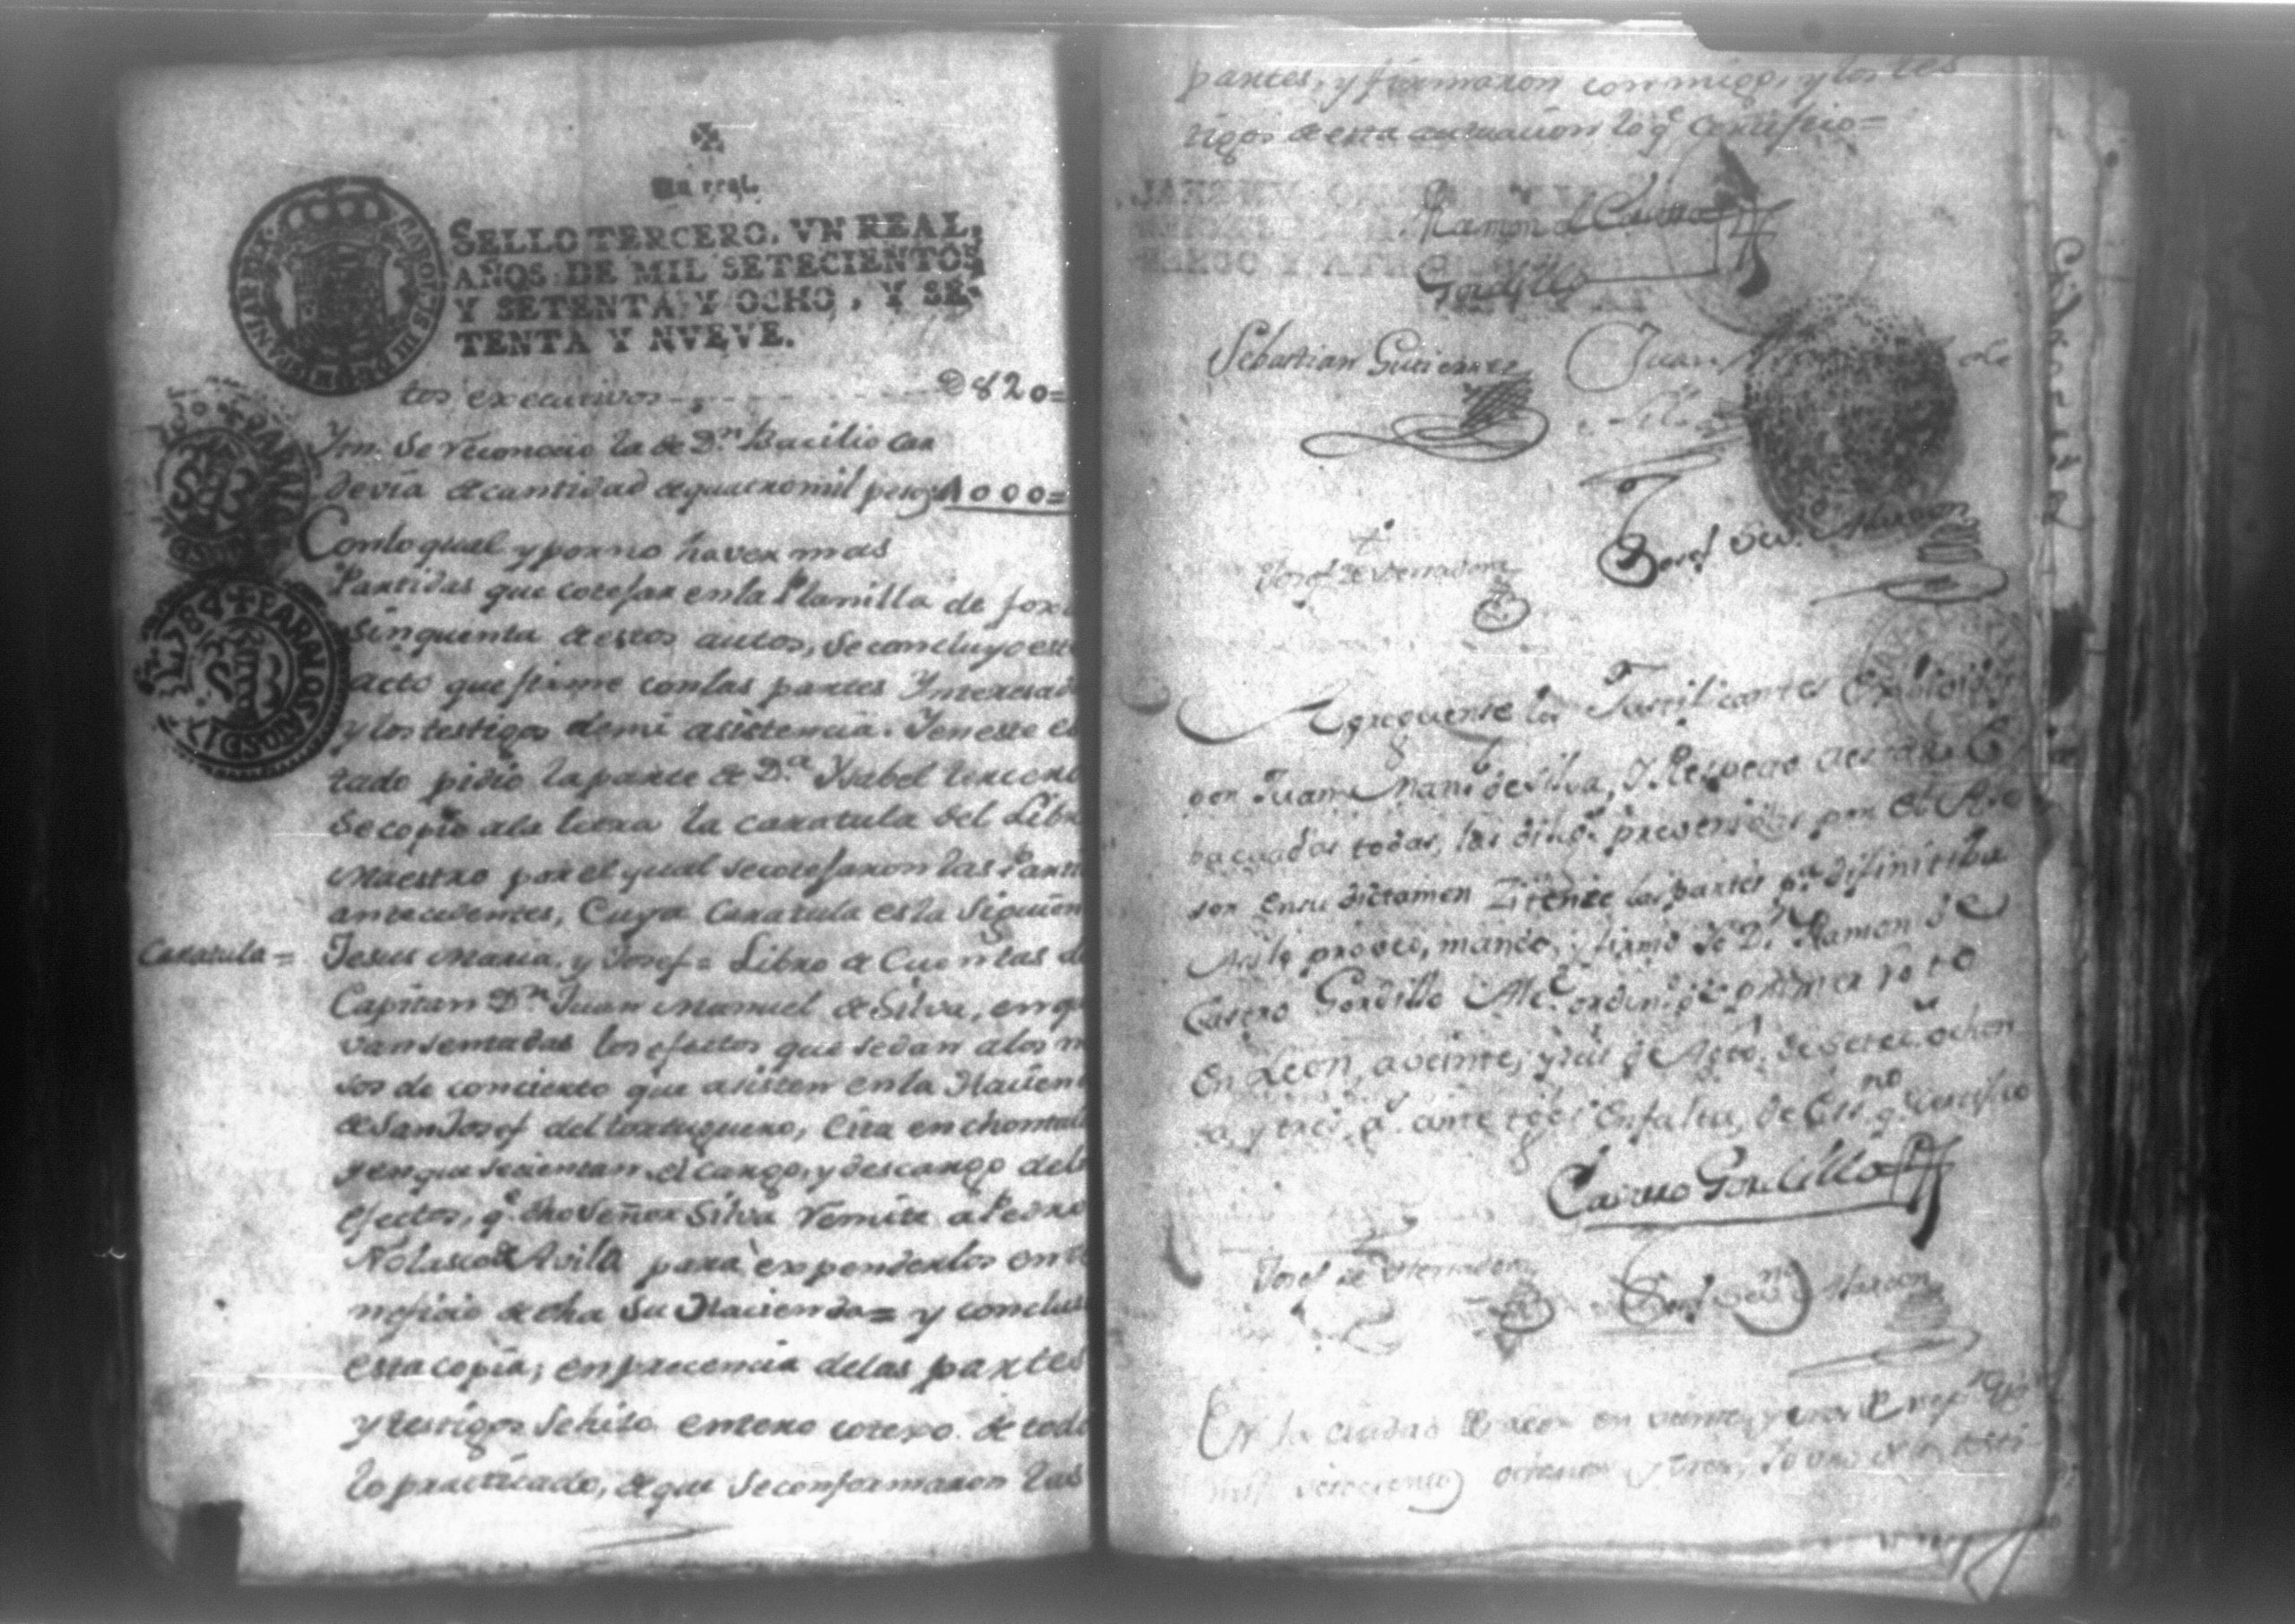 Un real.
SELLO TERCERO, VN REAL,
AÑOS DE MIL SETECIENTOS
Y SETENTA Y OCHO, Y SE-
TENTA Y NVEVE.
CAROLUS III D G HISPANIAR REX
tos executivos 820=
Ytn. Se reconocio la de Dn. Bacilio Can
devia de cantidad de quatro mil pesos 4000=
Con lo qual y por no haver mas
Partidas que cotejar en la Planilla de foxa
Sinquenta de estos autos, se concluyo este
acto que firme con las partes Ynteresad
y los testigos de mi asistencia. Y en este es
tado pidio la parte de Da. Ysabel
se copie a la letra la caratula del Libro
Maestro por el qual se cotejaron las Parti
antecedentes, Cuya Caratula es la Siguien
Caratula =
Jesus Maria, y Josef = Libro de Cuentas de
Capitan Dn. Juan Manuel de Silva, en q
van sentadas los efectos que se dan a los m
sos de concierto que asisten en la Hacien
de San Josef del tortuguero, cita en chontale
y en que se cientan el cargo, y descargo de l
efectos, qe. dho Señor Silva remite a Pedro
Nolasco de Avila para expenderlos en
neficio de dha su Hacienda = y conclus
esta copia, en precencia de las partes
y testigos se hiso entero cotexo de todo
lo practicado, de que se conformaron las
partes, y firmaron conmigo, y los tes
tigos de esta actuacion lo qe. Certifico =
Ramon de Castro
Gordillo
Sebastian Gutierrez
Juan
Silva
Josef de Herradora
Josef Alarcon
Agreguense los Justificantes Exhibidos
por Juan Manl. de Silva, y Respecto a estar E
bacuadas todas las diligs. prevenidas por el Ase
sor en su dictamen Zitense las partes pa. difinitiba
Asi lo proveo, mando, y firmo Yo Dn. Ramon de
Castro Gordillo Alce. ordino. de primer voto
En Leon, a veinte, y seis de Agto. de setec. ochen
ta, y tres as. ante tgos. En falta, de Essno. qe. Certifico
Castro Gordillo
Josef de Herradora
Josef Alarcon
En la ciudad de Leon en veinte y
mil setecientos ochenta y tres, Yo uno de los testi-